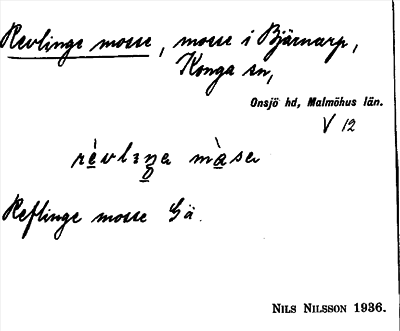 Revlinge mosse, mosse i Bjärnarp,
Konga sn,
Onsjö hd, Malmöhus län.
V 12
rèvlɜŋa màsa
Reflinge mosse Gä.
NILS NILSSON 1936.